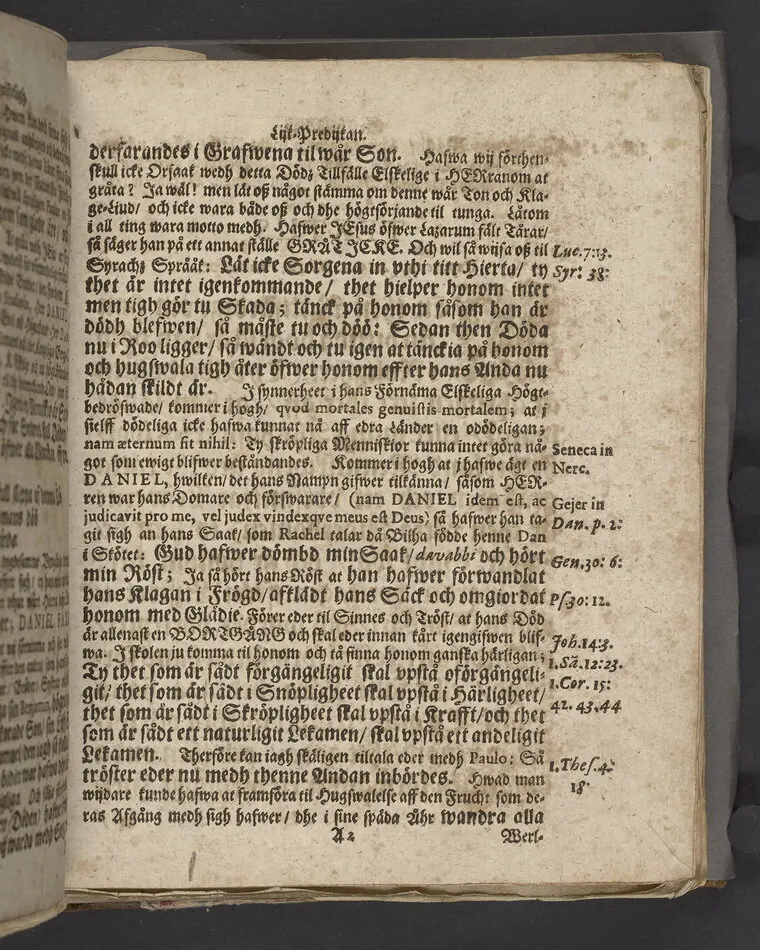 Lijk-Predijkan.
derfarandes i Grafwena til wår Son. Hafwa wij förthen-
skull icke Orsaak wedh detta Dödz Tillfälle Elskelige i HERranom at
gråta? Ja wäl! men låt oß något stämma om denne wår Ton och Kla-
ge-Liud/ och icke wara både oß och dhe högtsörjande til tunga. Låtom
i all ting wara motto medh. Hafwer JEsus öfwer Lazarum fält Tårar/
så säger han på ett annat ställe GRÅT ICKE. Och wil så wijsa oß til
Luc. 7:13.
Syrachz Språåk: Låt icke Sorgena in vthi titt Hierta/ ty
Syr: 38:
thet är intet igenkommande/ thet hielper honom intet
men tigh gör tu Skada; tänck på honom såsom han är
dödh blefwen/ så måste tu och döö: Sedan then Döda
nu i Roo ligger/ så wändt och tu igen at tänckia på honom
och hugswala tigh åter öfwer honom effter hans Anda nu
hädan skildt är. I synnerheet i hans Förnäma Elskeliga Högt-
bedröfwade/ kommer i hogh/ qvod mortales genuistis mortalem; at j
sielff dödeliga icke hafwa kunnat nå aff edra Länder en odödeligan;
nam æternum fit nihil: Ty skröpliga Menniskior kunna intet göra nå-
Seneca in
got som ewigt blifwer beståndandes. Kommer i hogh at j hafwe ägt en
Nerc.
DANIEL, hwilken/ det hans Nampn gifwer tilkänna/ såsom HER-
ren war hans Domare och förswarare/ (nam DANIEL idem est, ac
Gejer in
judicavit pro me, vel judex vindexqve meus est Deus) så hafwer han ta-
Dan. p. 2:
git sigh an hans Saak/ som Rachel talar då Bilha födde henne Dan
i Stötet: Gud hafwer dömbd min Saak/ davabbi och hört
Gen. 30: 6:
min Röst; Ja så hört hans Röst at han hafwer förwandlat
hans Klagan i Frögd/ afklädt hans Säck och omgiordat
Ps. 30: 12.
honom med Glädie. Förer eder til Sinnes och Tröst/ at hans Död
är allenast en BORTGÅNG och skal eder innan kårt igengifwen blif-
Joh. 14:3.
wa. J skolen ju komma til honom och tå finna honom ganska härligan;
1. Sã. 12:23.
Ty thet som är sådt förgängeligit skal vpstå oförgängeli-
1. Cor. 15:
git/ thet som är sådt i Snöpligheet skal vpstå i Härligheet/
thet som är sådt i Skröpligheet skal vpstå i Krafft/ och thet
42. 43. 44
som är sådt ett naturligit Lekamen/ skal vpstå ett andeligit
Lekamen. Therföre kan iagh skäligen tiltala eder medh Paulo: Så
tröster eder nu medh thenne Andan inbördes. Hwad man
1. Thes. 4:
wijdare kunde hafwa at framföra til Hugswalelse aff den Frucht som de-
18.
ras Afgång medh sigh hafwer/ dhe i sine späda Åhr wandra alla
A2
Werl-